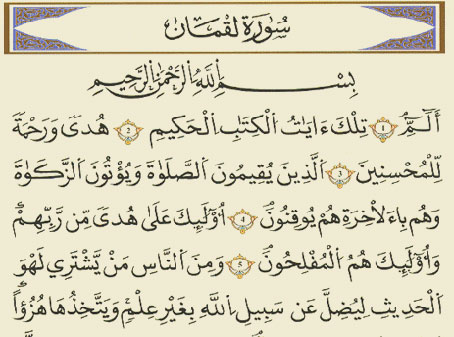 سُورَةُ لُقْمَانَ
بِسْمِ اِ۬للَّهِ اِ۬لرَّحْمَٰنِ اِ۬لرَّحِيمِ
أَلَٓمِّٓ ١ تِلْكَ ءَايَٰتُ اُ۬لْكِتَٰبِ اِ۬لْحَكِيمِ ٢ هُدىٗ وَرَحْمَةٗ
لِّلْمُحْسِنِينَ ٣ اَ۬لذِينَ يُقِيمُونَ اَ۬لصَّلَوٰةَ وَيُؤْتُونَ اَ۬لزَّكَوٰةَ
وَهُم بِالَاخِرَةِ هُمْ يُوقِنُونَۖ ٤ أُوْلَٰٓئِكَ عَلَىٰ هُدىٗ مِّن رَّبِّهِمْۖ
وَأُوْلَٰٓئِكَ هُمُ اُ۬لْمُفْلِحُونَۖ ٥ وَمِنَ اَ۬لنَّاسِ مَنْ يَّشْتَرِي لَهْوَ
اَ۬لْحَدِيثِ لِيُضِلَّ عَن سَبِيلِ اِ۬للَّهِ بِغَيْرِ عِلْمٖ وَيَتَّخِذُهَا هُزُؤاًۖ